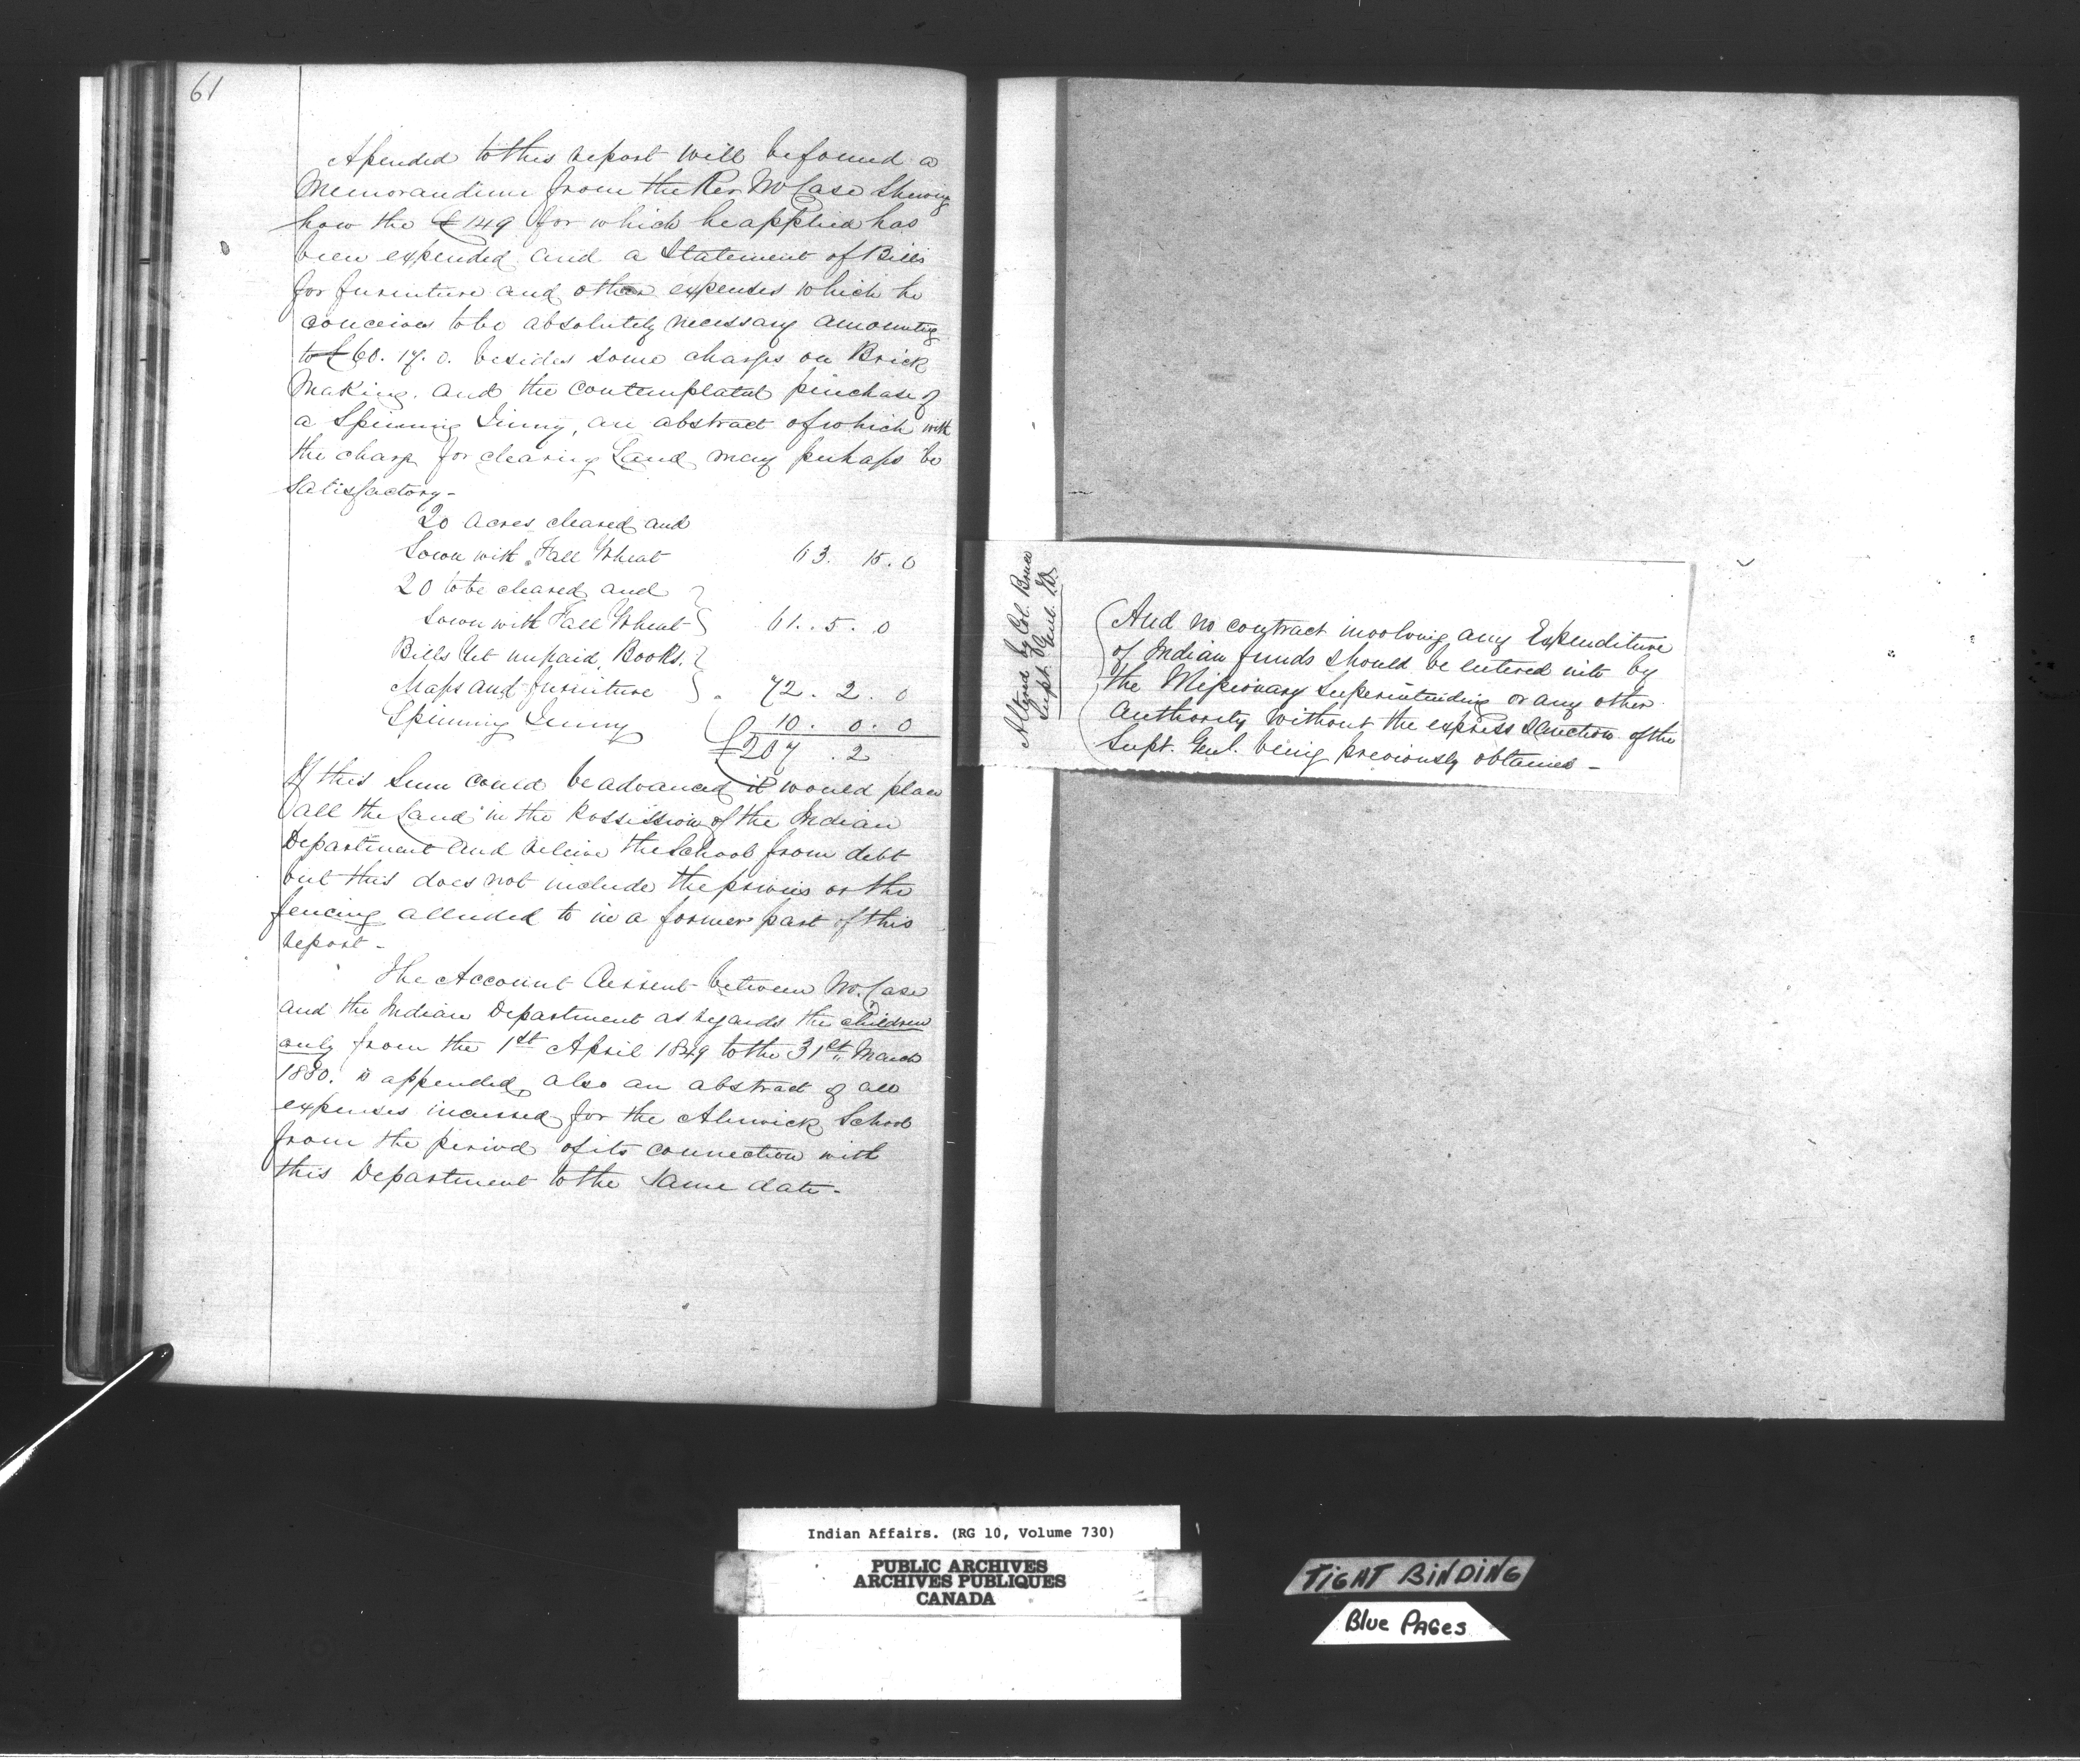 61
Apended to this report will be found a
Memorandum from the Rev Wm Case Shewing
how the £149 for which he applied has
been expended and a Statement of Bills
for furniture and other expenses which he
conceives to be absolutely necessary amounting
to £60. 17. 0. besides some charges on Brick
Making. and the contemplated purchase of
a Spinning Jinny, an abstract of which with
the charge for clearing Land may perhaps be
Satisfactory -
20 acres cleared and
Sown with Fall Wheat 63. 15. 0
20 to be cleared and
Sown with Fall Wheat 61. . 5. 0
Bills Yet unpaid, Books.
Maps and furniture 72. 2. 0
Spinning Jinny 10. 0. 0
£207 . 2
If this Sum could be advanced it would place
all the Land in the Possession of the Indian
Department and releive the School from debt
but this does not include the privies or the
fencing alluded to in a former part of this
report -
The Account Current between Mr. Case
and the Indian Department as regards the children
only from the 1st April 1849 to the 31st March
1850. is appended, also an abstract of all
expenses incurred for the Alnwick School
from the period of its connection with
this Department to the same date -
Altered by Col. Bruce
Supt. Genl. I.D.
And no contract involving any Expenditure
of Indian funds should be entered into by
the Missionary Superintending or any other
authority without the express Sanction of the
Supt. Genl. being previously obtained -
Indian Affairs. (RG 10, Volume 730)
PUBLIC ARCHIVES
ARCHIVES PUBLIQUES
CANADA
TIGHT BINDING
Blue PAGes